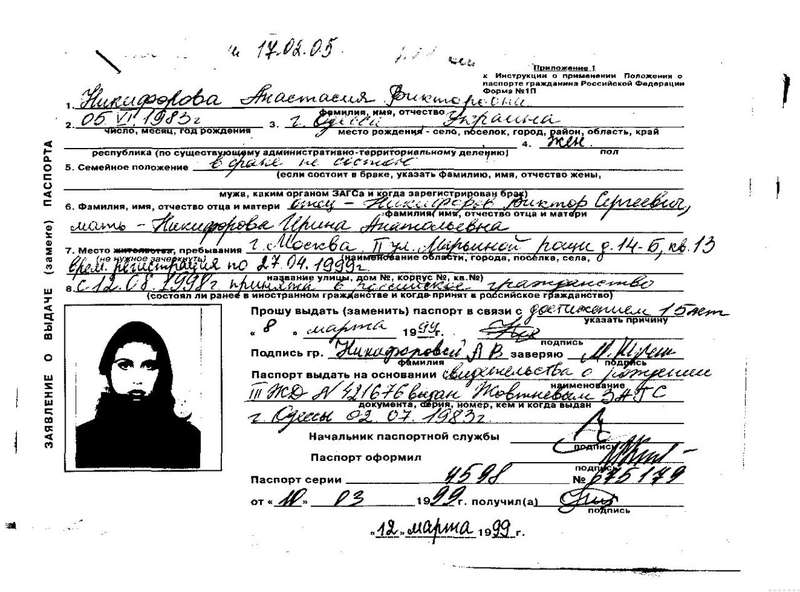 17.02.05
Приложение 1
к Инструкции о применении Положения о
паспорте гражданина Российской Федерации
Форма №1П
1. Никифорова Анастасия Викторовна
фамилия, имя, отчество
2. 05 VI 1983г 3. г. Одесса Украина
число, месяц, год рождения место рождения - село, поселок, город, район, область, край
4. жен.
республика (по существующему административно-территориальному делению) пол
5. Семейное положение в браке не состою
(если состоит в браке, указать фамилию, имя, отчество жены,
мужа, каким органом ЗАГСа и когда зарегистрирован брак)
6. Фамилия, имя, отчество отца и матери отец - Никифоров Виктор Сергеевич,
фамилия, имя, отчество отца и матери
мать - Никифорова Ирина Анатольевна
7. Место жительства, пребывания г. Москва II ул. Марьиной рощи д. 14-Б, кв. 13
(не нужное зачеркнуть) (наименование области, города, поселка, села,
врем. регистрация по 27.04.1999г.
название улицы, дом №, корпус №, кв.№)
8. с 12.08.1998г принята в российское гражданство
(состоял ли ранее в иностранном гражданстве и когда принят в российское гражданство)
ЗАЯВЛЕНИЕ О ВЫДАЧЕ (замене) ПАСПОРТА
Прошу выдать (заменить) паспорт в связи с достижением 15 лет
указать причину
« 8 » марта 1999г.
подпись
Подпись гр. Никифоровой А В заверяю
фамилия подпись
Паспорт выдать на основании свидетельства о рождении
наименование
III ЖД № 421676 выдан Жовтневым ЗАГС
документа, серия, номер, кем и когда выдан
г. Одессы 02.07.1983г.
Начальник паспортной службы
подпись
Паспорт оформил
подпись
Паспорт серии 4598 № 675179
от « 10 » 03 1999г. получил(а)
подпись
« 12 » марта 1999г.